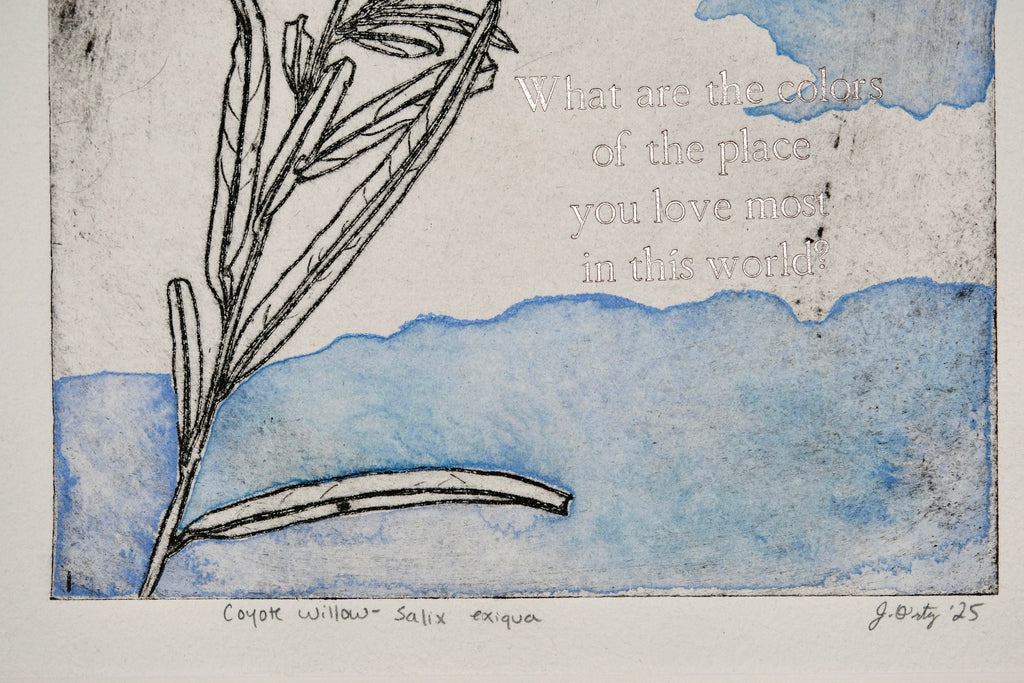 What are the colors
of the place
you love most
in this world?
Coyote Willow - Salix exiqua
J. Ortz '25